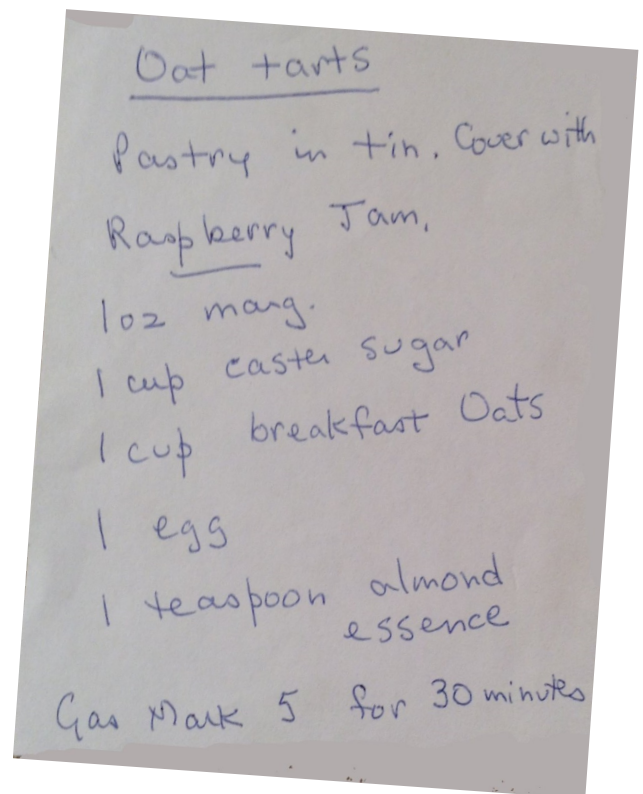 Oat tarts
Pastry in tin. Cover with
Raspberry Jam.
1 oz marg.
1 cup caster sugar
1 cup breakfast Oats
1 egg
1 teaspoon almond
essence
Gas Mark 5 for 30 minutes